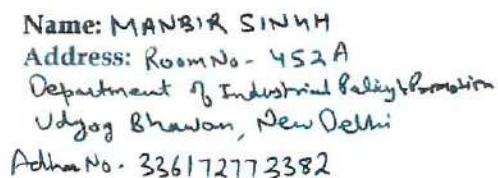 Name: MANBIR SINGH
Address: Room No - 452A
Department of Industrial Policy & Promotion
Udyog Bhawan, New Delhi
Adhar No. 336172773382